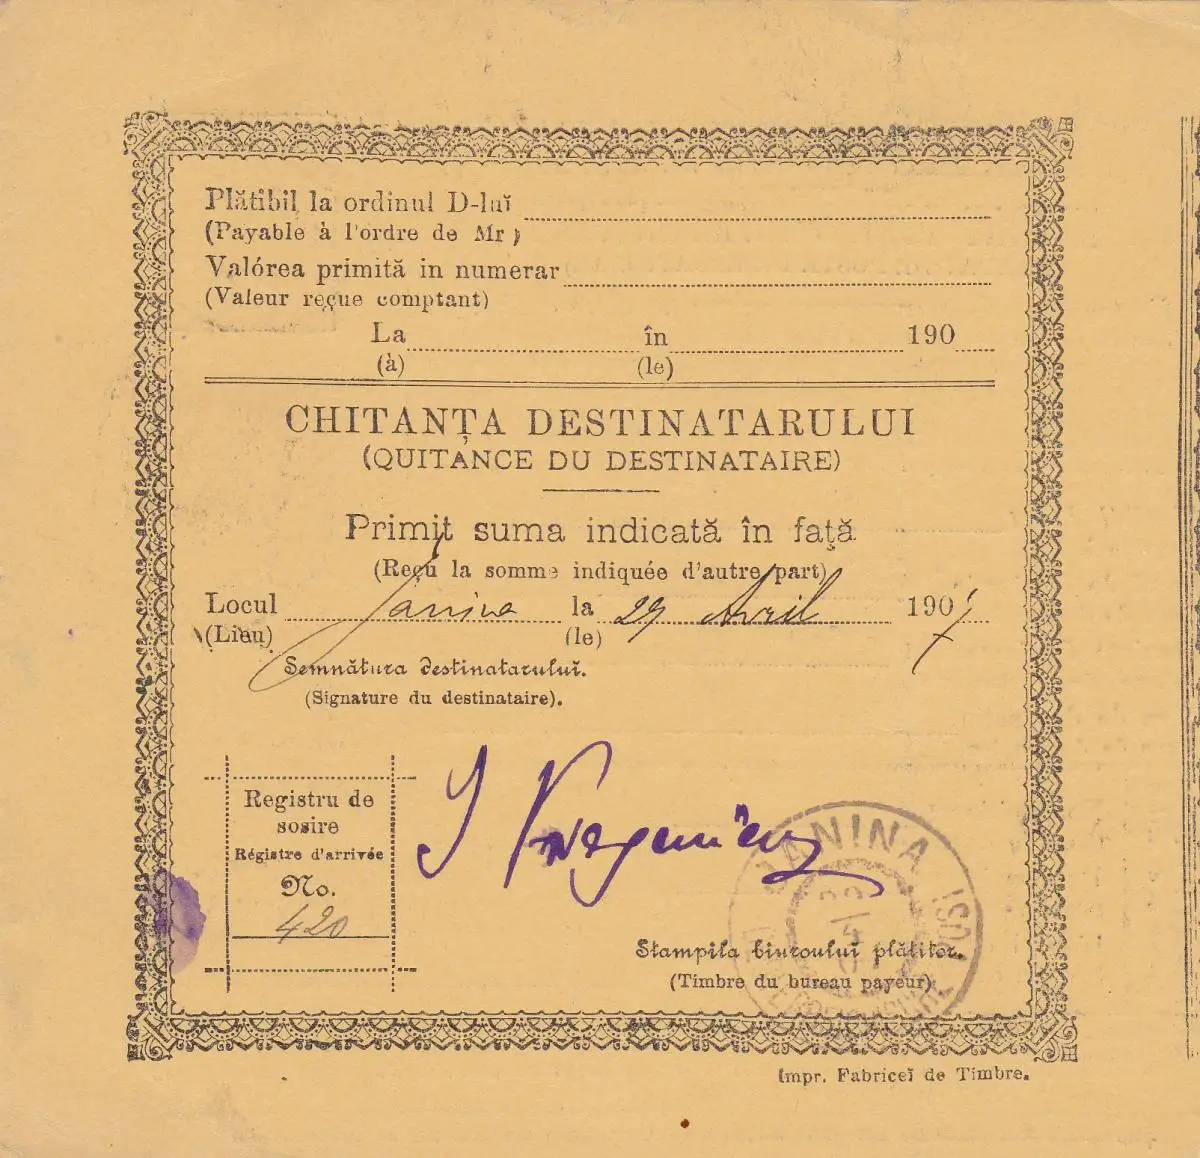 Plătibil la ordinul D-luĭ
(Payable à l'ordre de Mr)
Valórea primită in numerar
(Valeur reçue comptant)
La în 190
(à) (le)
CHITANȚA DESTINATARULUI
(QUITANCE DU DESTINATAIRE)
Primit suma indicată în față
(Reçu la somme indiquée d'autre part)
Locul Janina la 29 Avril 1907
(Lieu) (le)
Semnătura destinatarului.
(Signature du destinataire).
Registru de
sosire
Régistre d'arrivée
No.
420
JANINA
Stampila biuroului plătitor.
(Timbre du bureau payeur)
Impr. Fabriceĭ de Timbre.